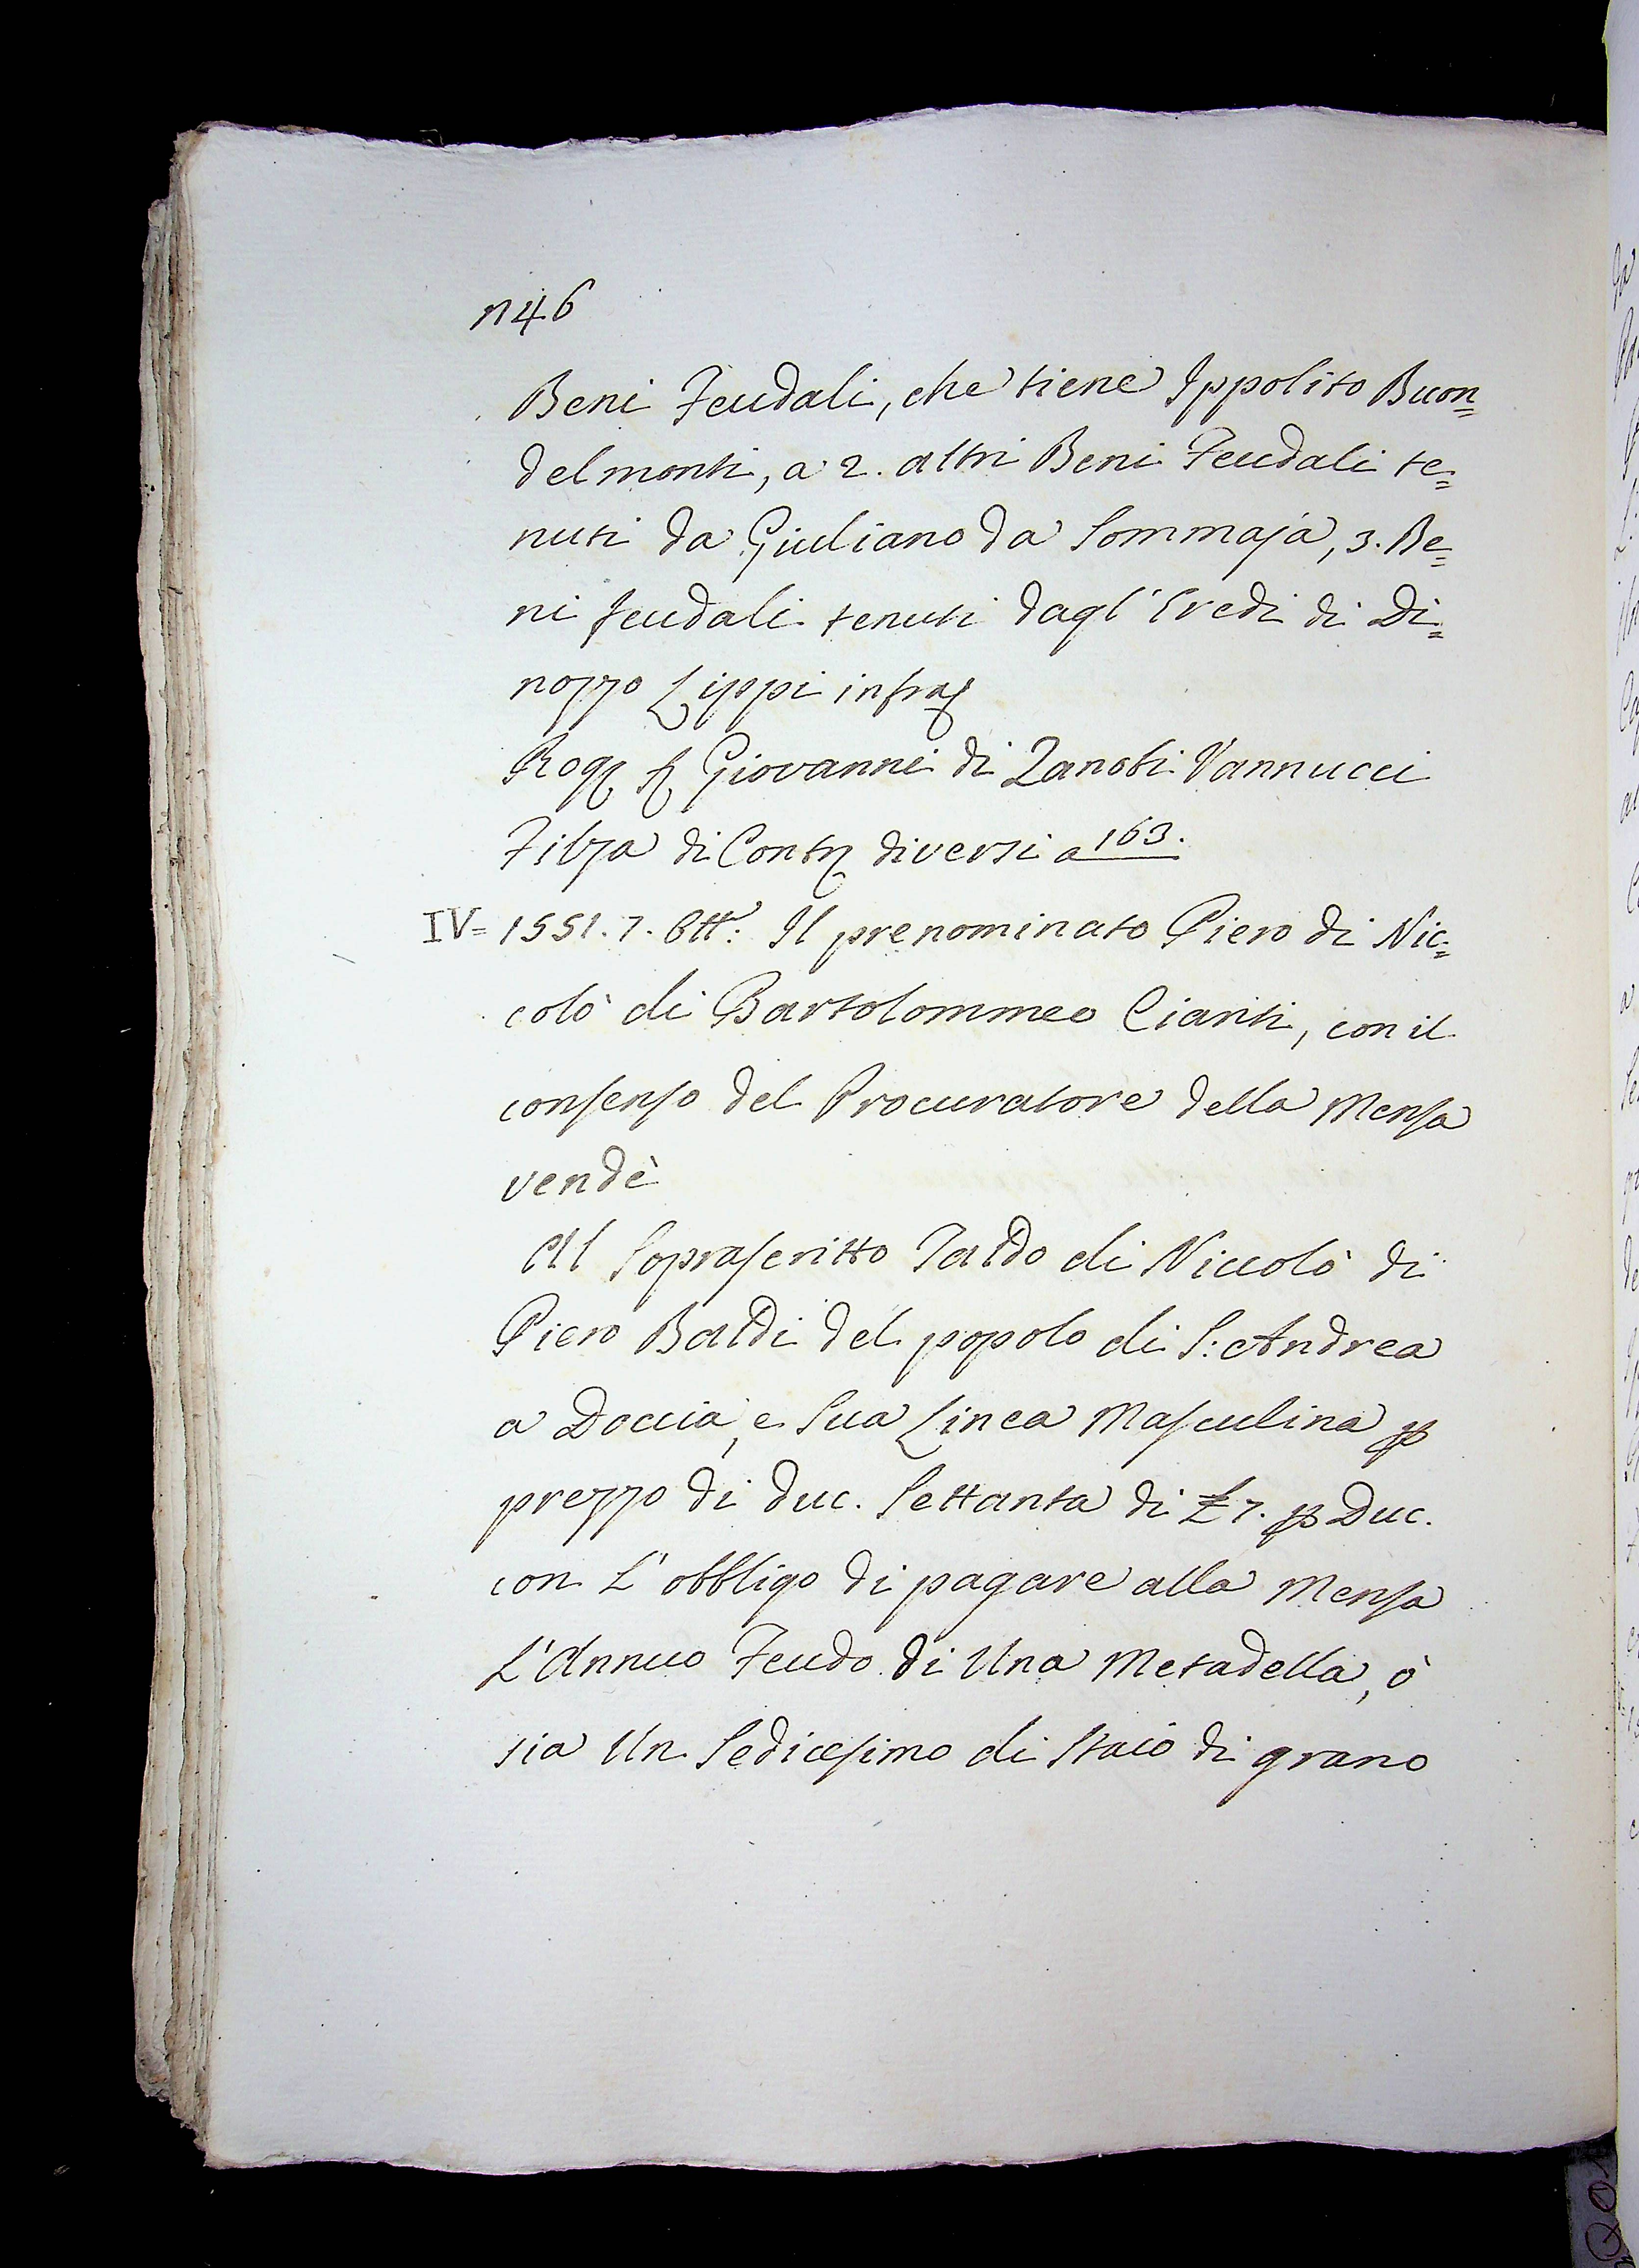 n46
Beni Feudali, che tiene Ippolito Buon=
delmonti, a 2. altri Beni Feudali te=
nuti da Giuliano da Sommaja, 3. Be=
ni feudali tenuti dagl' Eredi di Di=
nozzo Lippi infra
Rog Giovanni di Zanobi Vannucci
Filza di Contr diversi a 163.
IV= 1551. 7. Ott: Il prenominato Piero di Nic=
colò di Bartolommeo Cianti, con il
consenso del Procuratore della Mensa
vendè
Al Soprascritto Taddo di Niccolò di
Piero Baldi del popolo di S: Andrea
a Doccia, e Sua Linea Masculina p
prezzo di Duc. Settanta di £ 7. p Duc.
con L' obbligo di pagare alla Mensa
L' Annuo Feudo di Una Metadella, ò
sia Un Sedicesimo di Staio di grano